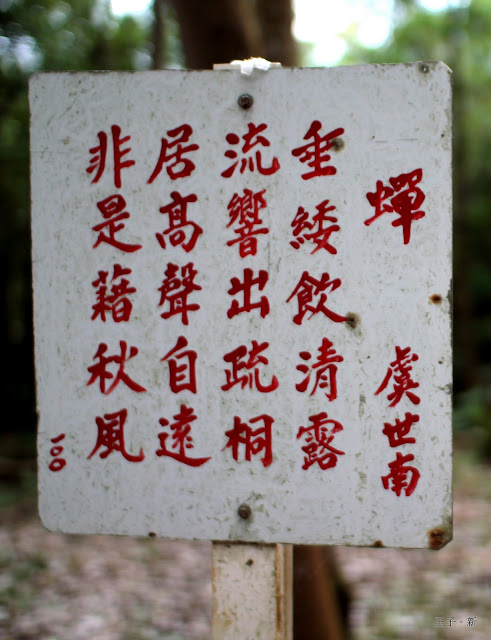 蟬 虞世南
垂緌飲清露
流響出疏桐
居高聲自遠
非是藉秋風
一００
王子．新